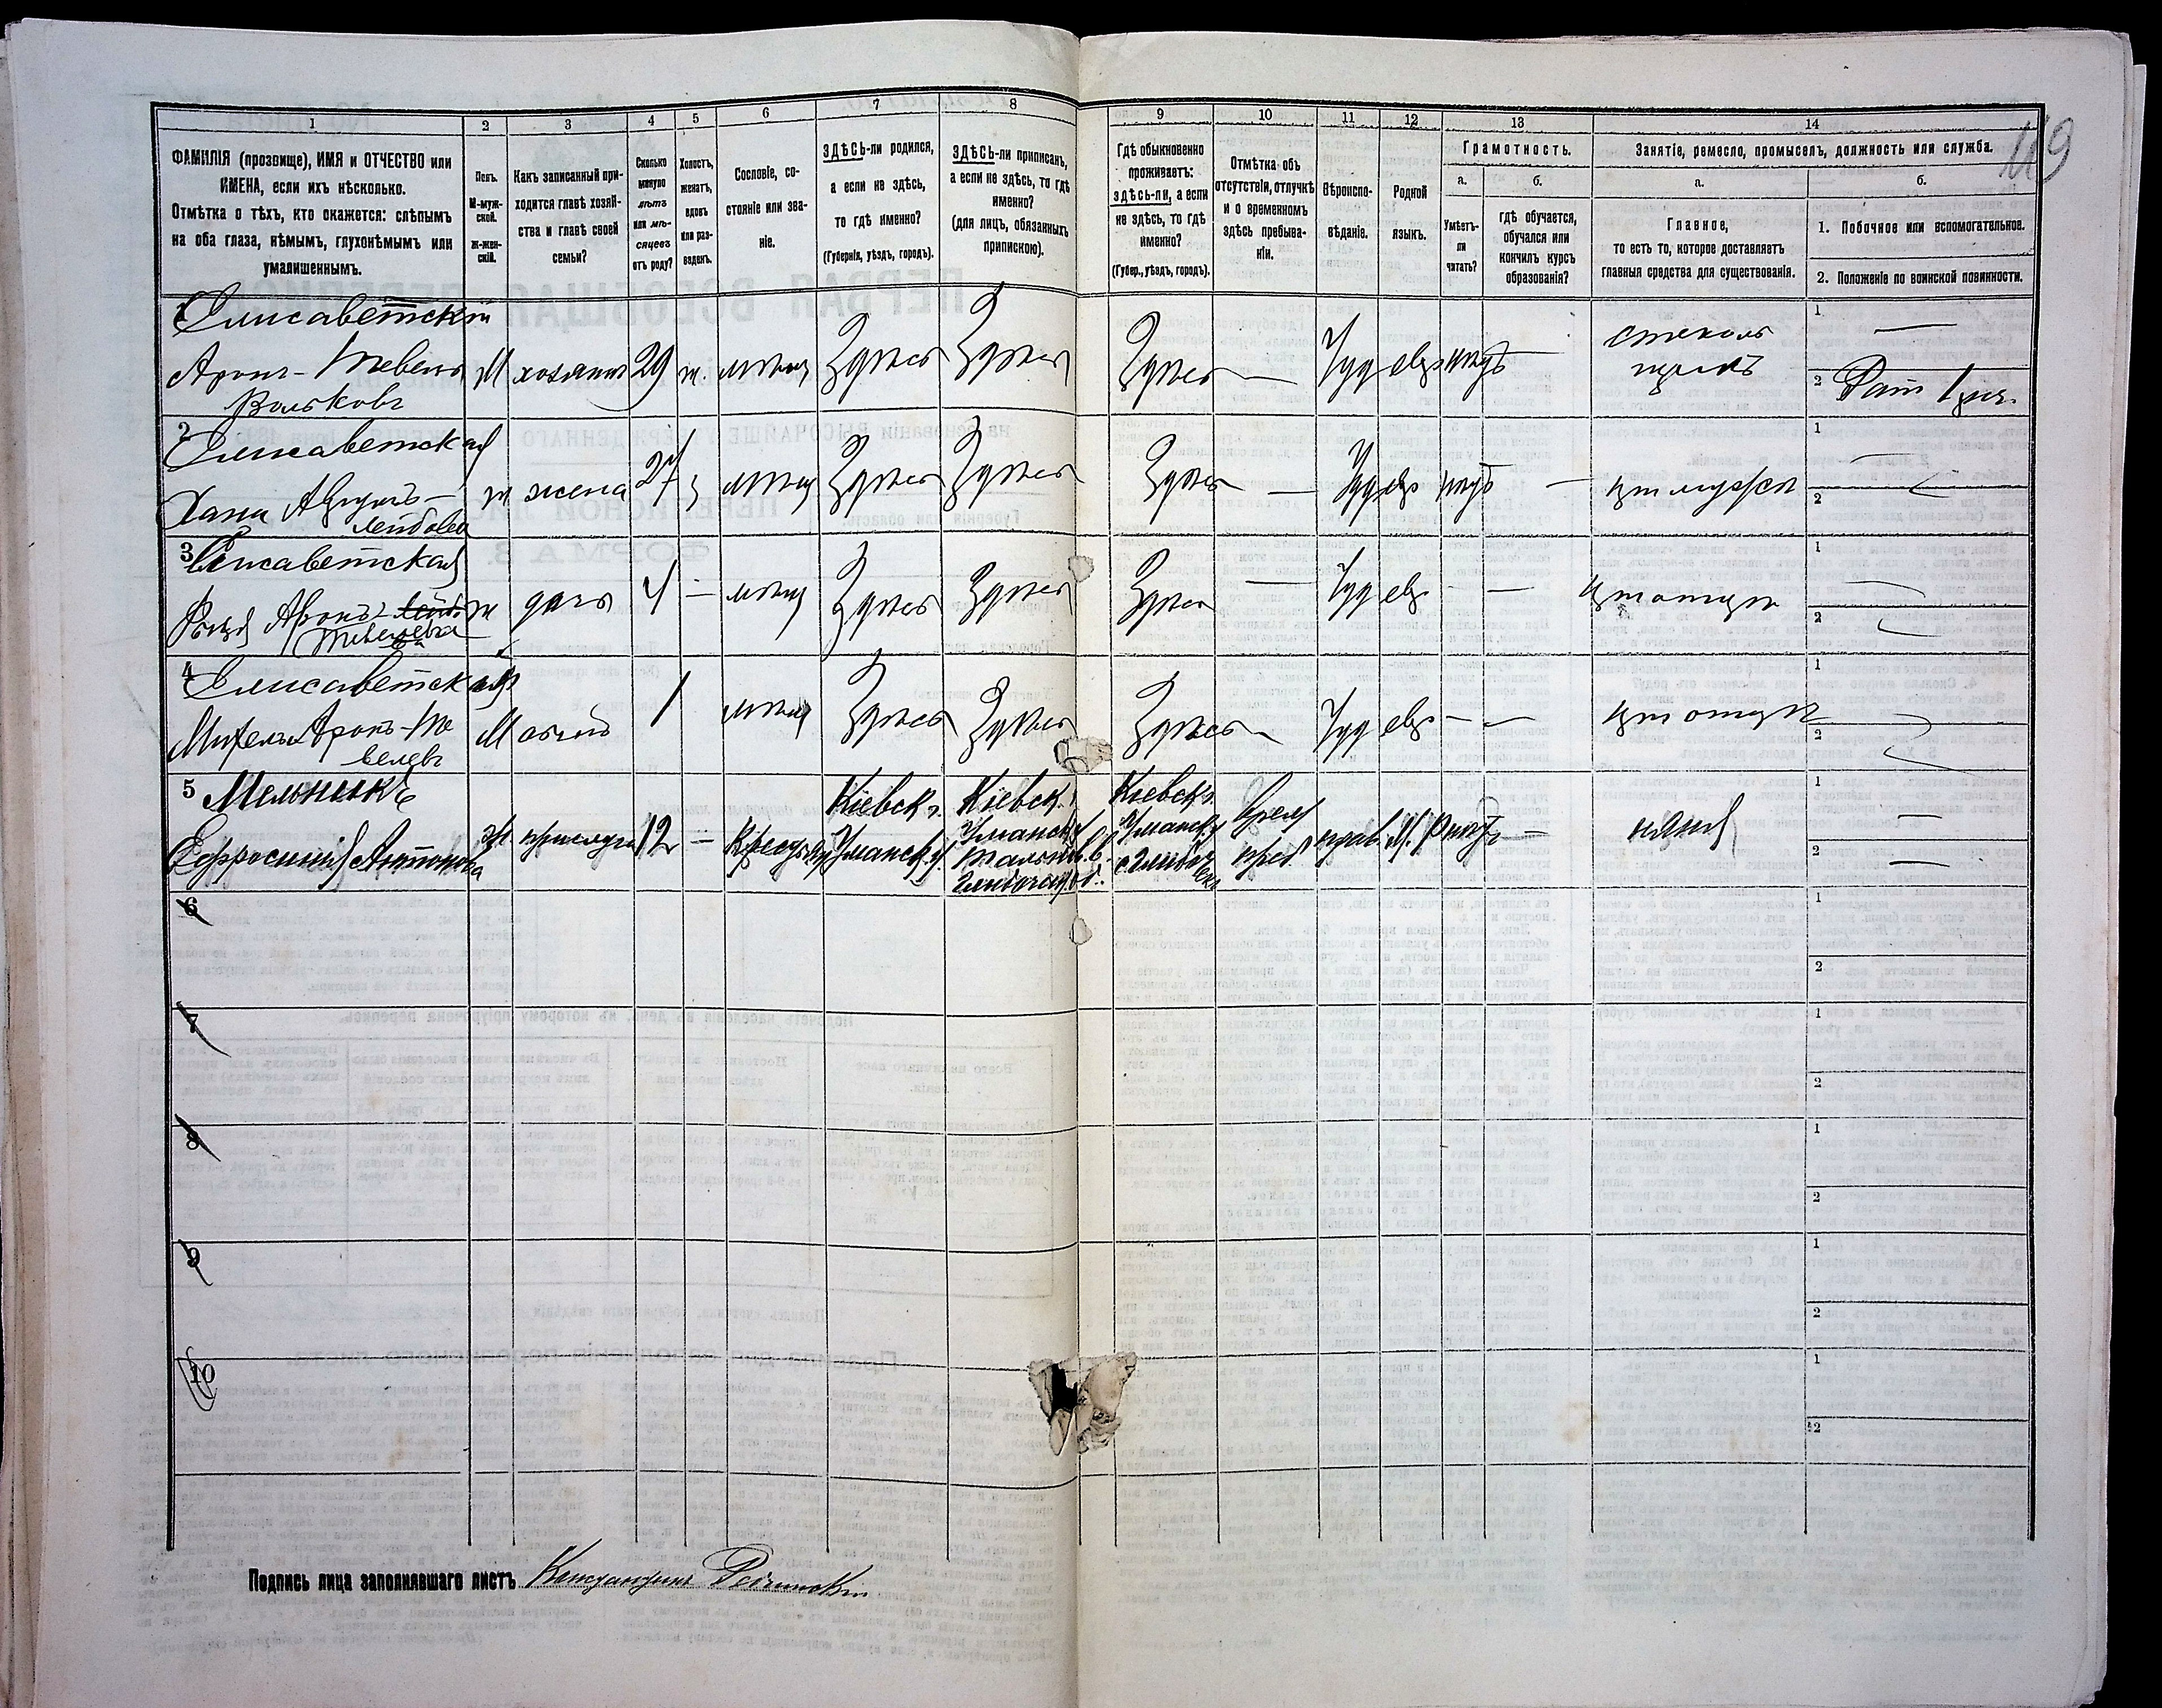 119
1 2 3 4 5 6 7 8 9 10 11 12 13 14
ФАМИЛІЯ (прозвище), ИМЯ и ОТЧЕСТВО или
ИМЕНА, если ихъ нѣсколько.
Отмѣтка о тѣхъ, кто окажется: слѣпымъ
на оба глаза, нѣмымъ, глухонѣмымъ или
умалишеннымъ.
Полъ.
М-муж-
ской.
Ж-жен-
скій.
Какъ записанный при-
ходится главѣ хозяй-
ства и главѣ своей
семьи?
Сколько
минуло
лѣтъ
или мѣ-
сяцевъ
отъ роду?
Холостъ,
женатъ,
вдовъ
или раз-
веденъ.
Сословіе, со-
стояніе или зва-
ніе.
ЗДѢСЬ-ли родился,
а если не здѣсь,
то гдѣ именно?
(Губернія, уѣздъ, городъ).
ЗДѢСЬ-ли приписанъ,
а если не здѣсь, то гдѣ
именно?
(для лицъ, обязанныхъ
припискою).
Гдѣ обыкновенно
проживаетъ:
здѣсь-ли, а если
не здѣсь, то гдѣ
именно?
(Губер., уѣздъ, городъ).
Отмѣтка объ
отсутствіи, отлучкѣ
и о временномъ
здѣсь пребыва-
ніи.
Вѣроиспо-
вѣданіе.
Родной
языкъ.
Грамотность.
а.
Умѣетъ-
ли
читать?
б.
гдѣ обучается,
обучался или
кончилъ курсъ
образованія?
Занятіе, ремесло, промыселъ, должность или служба.
а.
Главное,
то есть то, которое доставляетъ
главныя средства для существованія.
б.
1. Побочное или вспомогательное.
2. Положеніе по воинской повинности.
1 Елисаветскій
Аронъ-Тевель М хозяинъ 29 ж. мѣщ Здѣсь Здѣсь Здѣсь — Іуд евр нѣтъ —
Вольковъ
1 —
2 Рат 1 раз.
2 Елисаветская
Хана
Лейбова
ж жена 27 з мѣщ Здѣсь Здѣсь Здѣсь — Іуд евр нѣтъ — при мужѣ
1 —
2 —
3 Елисаветская
Аронъ-
Тевелева
ж дочь 4 — мѣщ Здѣсь Здѣсь Здѣсь — Іуд евр — — при отцѣ
1 —
2 —
4 Елисаветскій
Аронъ-Те
велевъ
М сынъ 1 мѣщ Здѣсь Здѣсь Здѣсь — Іуд евр — — при отцѣ
1 —
2 —
5 Мельникъ
Ефросинія Антонова
ж. прислуга 12 — Крестьян
Кіевск г.
Уманск у.
Кіевск.
Уманск у
Тальнов. в.
Кіевск г.
Уманск у
врем
преб. прав. М. Р нѣтъ — няня
1 —
2 —
6
1
2
7
1
2
8
1
2
9
1
2
10
1
2
Подпись лица заполнявшаго листъ Константинъ